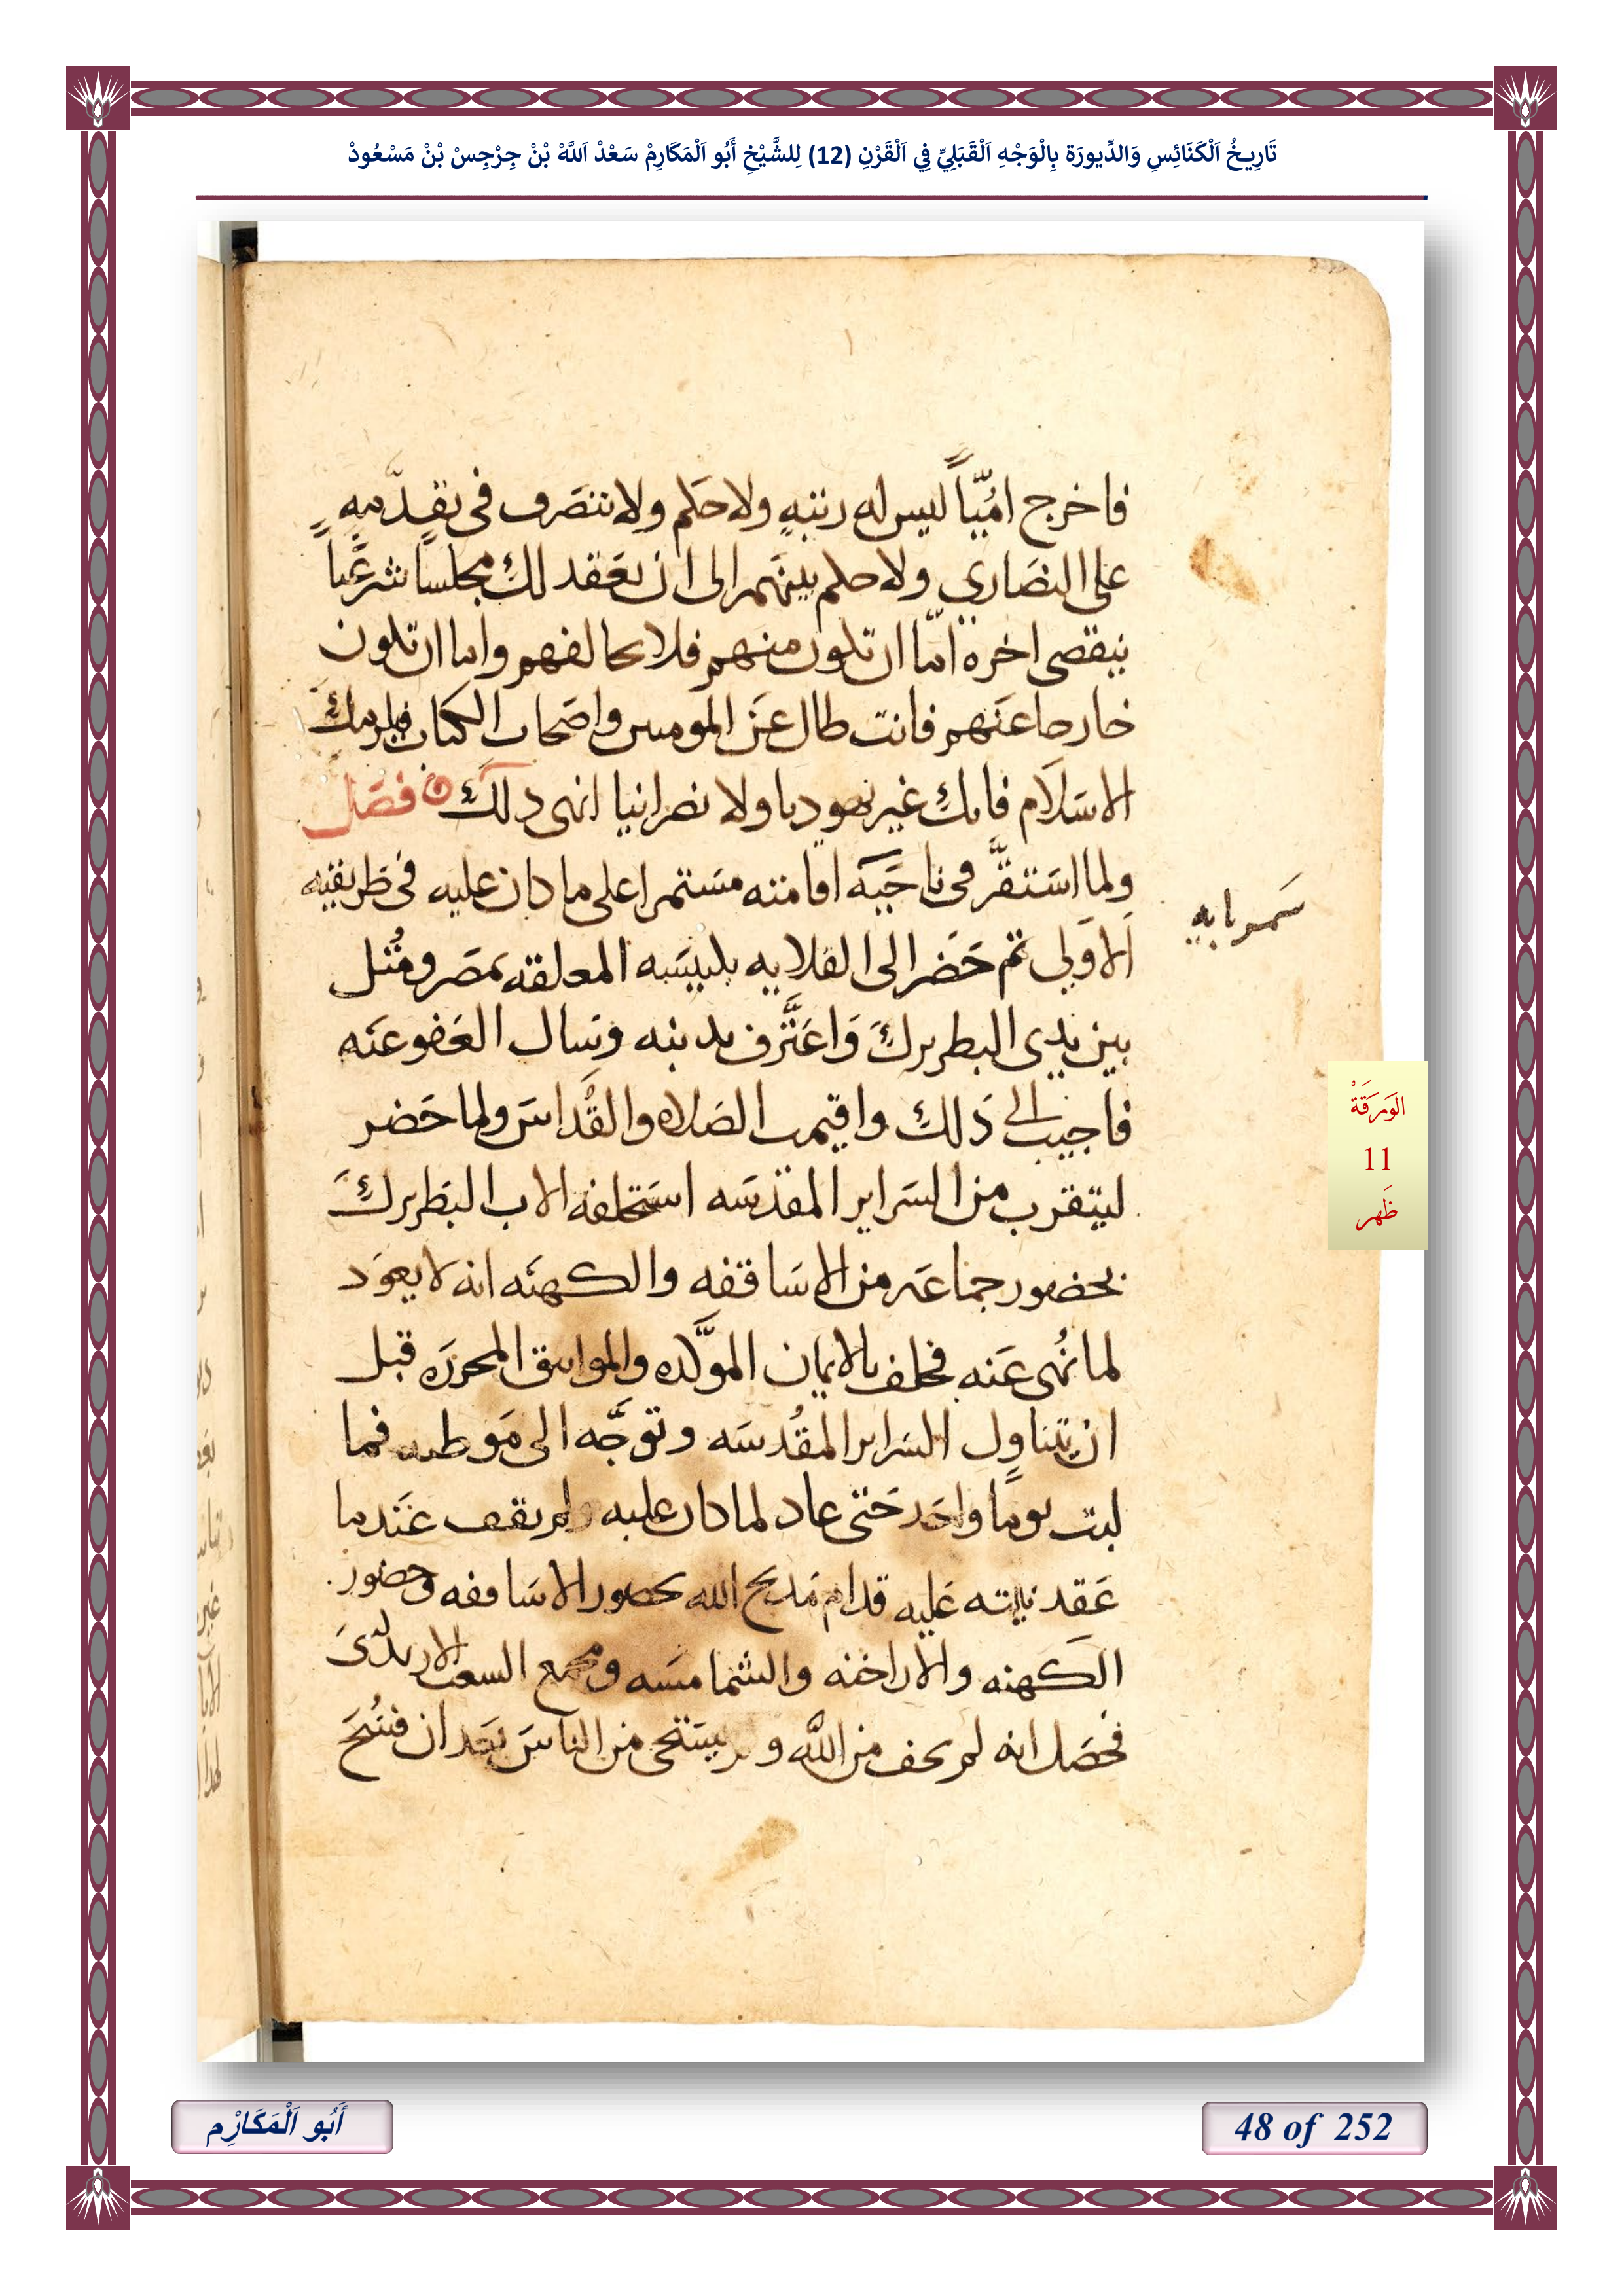 تَارِيخُ اَلْكَنَائِسِ وَالدِّيورَة بِالْوَجْهِ اَلْقَبَلِيِّ فِي اَلْقَرْنِ (12) لِلشَّيْخِ أَبُو اَلْمَكَارِمْ سَعْدْ اَللَّهْ بْنْ جِرْجِسْ بْنْ مَسْعُودْ
فاخرج امُيّاً ليس له رتبهٍ ولا حَكم ولا تتصَرف فى تقدّمهٍ
على النصَاري ولا حكم بينهَم الى ان نعَقد لك مجلساً شرعَّياً
بيقصى اخره امّا ان تكون منهم فلا تخالفهم واما ان تكون
خارجا عنَهم فانت طال عَن المومنين واصَحاب الكتاب فيلزمك
الاسَلَام فانك غير يهوديا ولا نصرانيا انهى ذلك فصَل
ولما اسَتقرَّ فى ناحَيه اقامته مسَتمرا على ما كان عليه فى طريقته
سَمربايه
الاوَلى ثم حَضر الى القلايه بكنيسَه المعلقه بمصَر ومُثل
بين يدى البطريرك وَاعَترَف بذنبه وسَال العَفو عنَه
فاجيب الى ذَلك واقيمت الصَلاه والقُداسَ ولما حَضر
ليتقرب من السَراير المقدسَه استَحلفه الاب البَطريرك
بحضور جماعَه من الاسَاقفه والكهنَه انه لا يعوَد
لما نُهى عَنه فحلف بالايمان الموكَّده والمواثيق المحررَه قبل
ان يتناول السَراير المقُدسَه وتوجَّه الى مَوطنه فما
لبث يوماً واحَد حَتى عاد لما كان عليه ولم يقف عَندما
عَقد نيته عَليه قدام مَدبح الله بحضور الاسَاقفه وحضور
الكهنه والاراخنه والشمامسَه ومجمع السعب الارتدكىَ
فحصَل انه لم يخف من الله و لم يستحى من الناسَ بعَد ان فسُحَ
الوَرَقَةْ
11
ظَهر
أَبُو اَلْمَكَارِْم
48 of 252